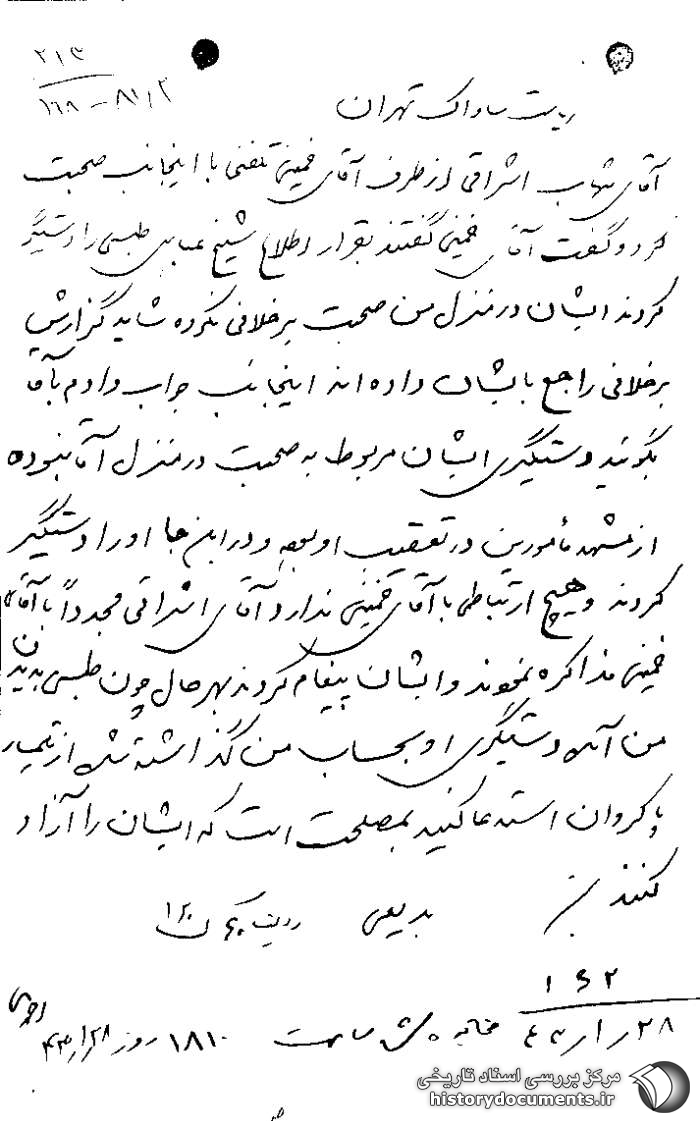 ۲۱۳
ریاست ساواک تهران
آقای شهاب اشراقی از طرف آقای خمینی تلفنی با اینجانب صحبت
کرد و گفت آقای خمینی گفتند بقرار اطلاع شیخ عباس طبسی را دستگیر
کردند ایشان در منزل من صحبت برخلافی نکرده شاید گزارش
برخلافی راجع بایشان داده اند اینجانب جواب دادم بآقا
بگوئید دستگیری ایشان مربوط به صحبت در منزل آقا نبوده
از مشهد مأمورین در تعقیب او بوده و در این جا او را دستگیر
کردند و هیچ ارتباطی با آقای خمینی ندارد آقای اشراقی مجدداً با آقای
خمینی مذاکره نمودند و ایشان پیغام کردند بهر حال چون طبسی بدیدن
من آمده دستگیری او بحساب من گذاشته شده از تیمسار
پاکروان استدعا کنید بمصلحت است که ایشان را آزاد
کنند
بدیعی
۱۶۲
۲۸/۱/۴۳
مخابره شد ساعت ۱۸۱۰ روز ۴۳/۱/۲۸
مرکز بررسی اسناد تاریخی
historydocuments.ir